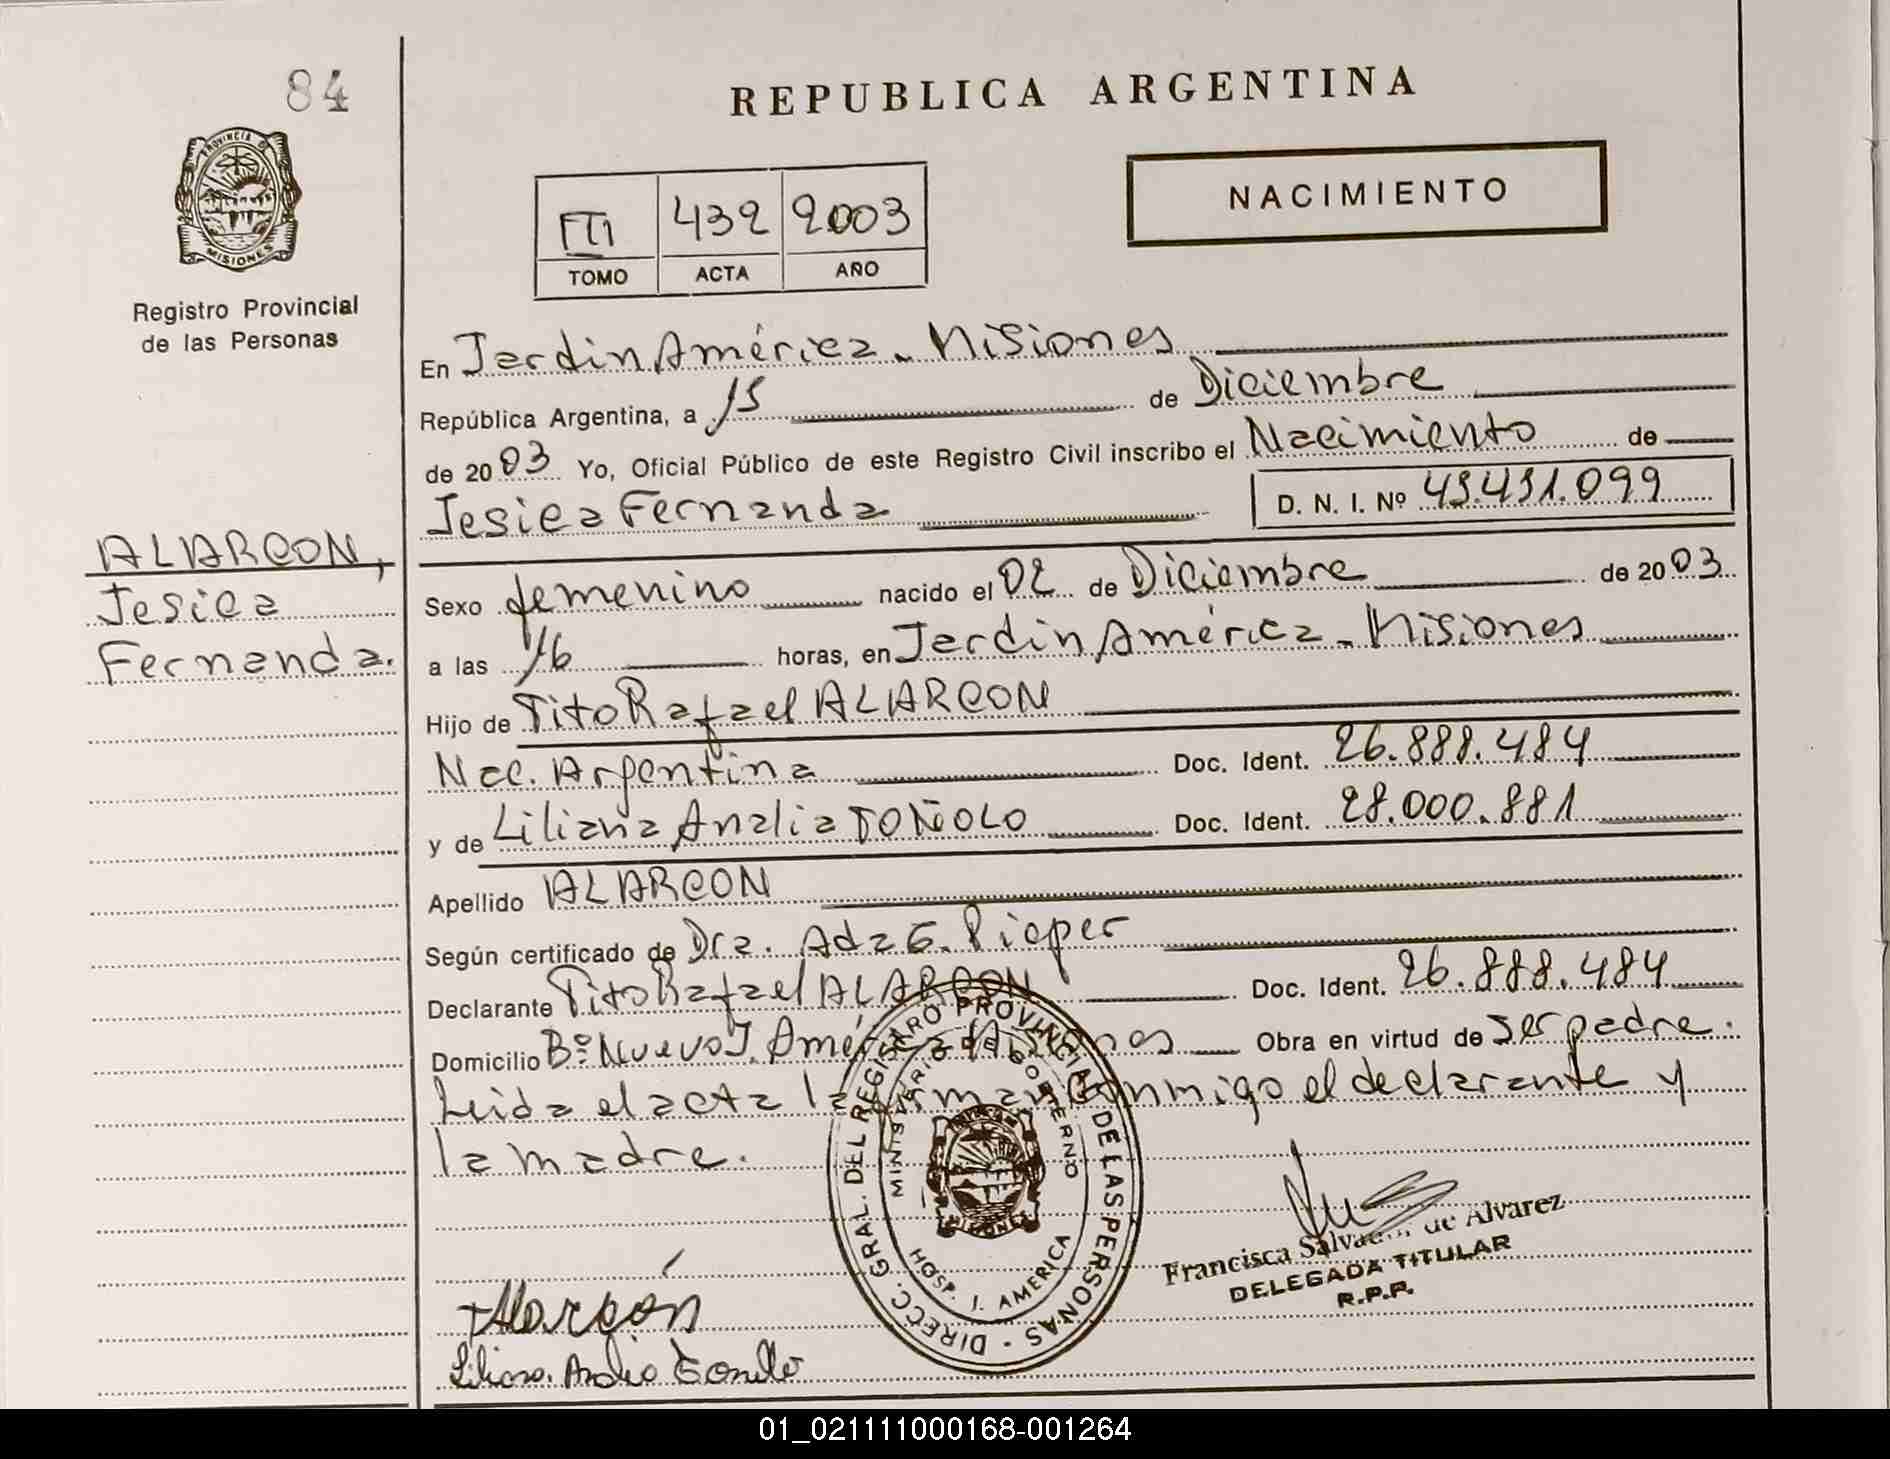 84
REPUBLICA ARGENTINA
PROVINCIA DE
MISIONES
Registro Provincial
de las Personas
NACIMIENTO
III 432 2003
TOMO ACTA AÑO
En Jardin América - Misiones
República Argentina, a 15 de Diciembre
de 2003 Yo, Oficial Público de este Registro Civil inscribo el Nacimiento de
Jesica Fernanda D. N. I. Nº 45.451.099
ALARCON,
Jesica
Fernanda.
Sexo femenino nacido el 02 de Diciembre de 2003
a las 16 horas, en Jardin América - Misiones
Hijo de Tito Rafael ALARCON
Nac. Argentina Doc. Ident. 26.888.484
y de Liliana Analia TOÑOLO Doc. Ident. 28.000.881
Apellido ALARCON
Según certificado de Dra. Ada E. Pieper
Declarante Tito Rafael ALARCON Doc. Ident. 26.888.484
Domicilio Bº Nuevo J. América Misiones Obra en virtud de ser padre.
Leida el acta la firman conmigo el declarante y
la madre.
DIRECC. GRAL. DEL REGISTRO PROVINCIAL DE LAS PERSONAS -
MINISTERIO DE GOBIERNO
MISIONES
HOSP. J. AMERICA
Francisca de Alvarez
DELEGADA TITULAR
R.P.P.
Alarcón
Liliana
01_021111000168-001264